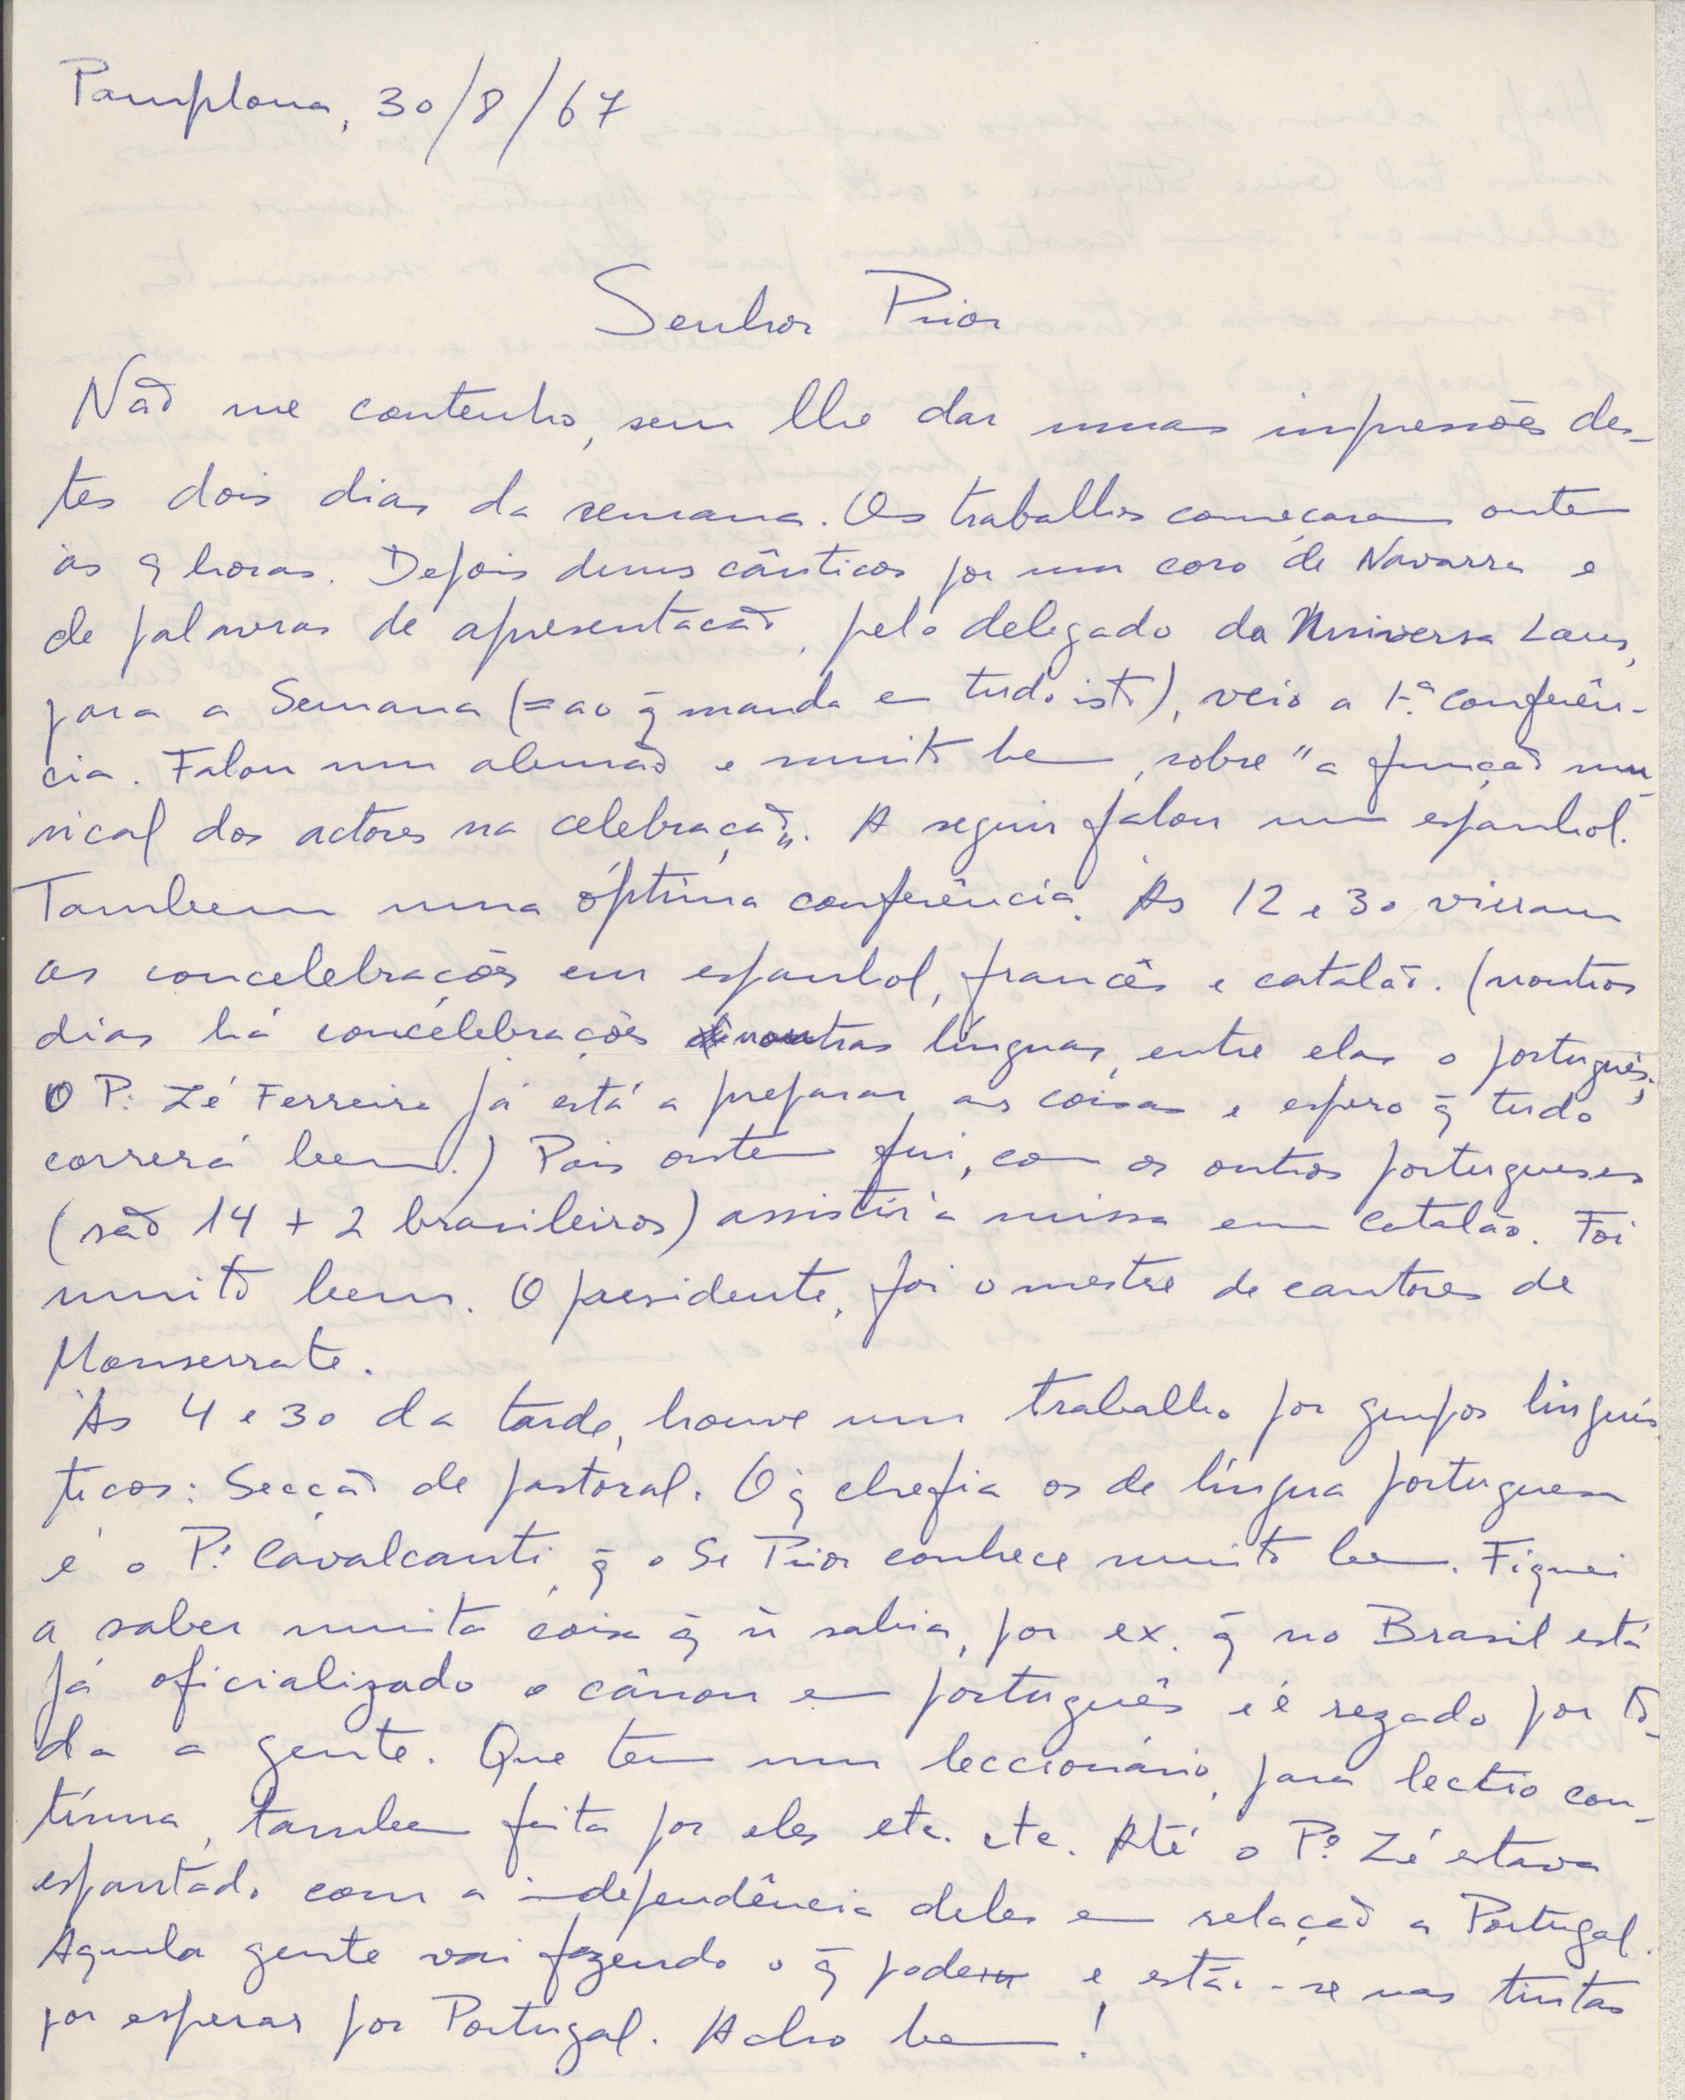 Pamplona, 30/8/67
Senhor Prior
Não me contenho, sem lhe dar umas impressões des-
tes dois dias da semana. Os trabalhos começaram ontem
às 9 horas. Depois duns cânticos por um coro de Navarra e
de palavras de apresentação, pelo delegado da Universa Laus,
para a Semana (= ao q̃ manda em tudo isto), veio a 1.ª conferên-
cia. Falou um alemão e muito bem, sobre "a função mu-
sical dos actores na celebração". A seguir falou um espanhol.
Tambem uma óptima conferência. Às 12 e 30 vieram
as concelebrações em espanhol, francês e catalão. (noutros
dias há concelebrações noutras línguas, entre elas o português;
O P.e Zé Ferreira já está a preparar as coisas e espero q̃ tudo
correrá bem.) Pois ontem fui, com os outros portugueses
(são 14 + 2 brasileiros) assistir à missa em Catalão. Foi
muito bem. O presidente, foi o mestre de cantores de
Monserrate.
Às 4 e 30 da tarde, houve um trabalho por grupos linguís-
ticos: Secção de pastoral. O q̃ chefia os de língua portuguesa
é o P.e Cavalcanti, q̃ o Sr Prior conhece muito bem. Fiquei
a saber muita coisa q̃ ñ sabia, por ex. q̃ no Brasil está
já oficializado o cânon em português e é rezado por to-
da a gente. Que tem um leccionário, para lectio con-
tínua, tambem feita por eles etc. etc. Até o P.e Zé estava
espantado com a independência deles em relação a Portugal.
Aquela gente vai fazendo o q̃ podem e estão-se nas tintas
por esperar por Portugal. Acho bem!